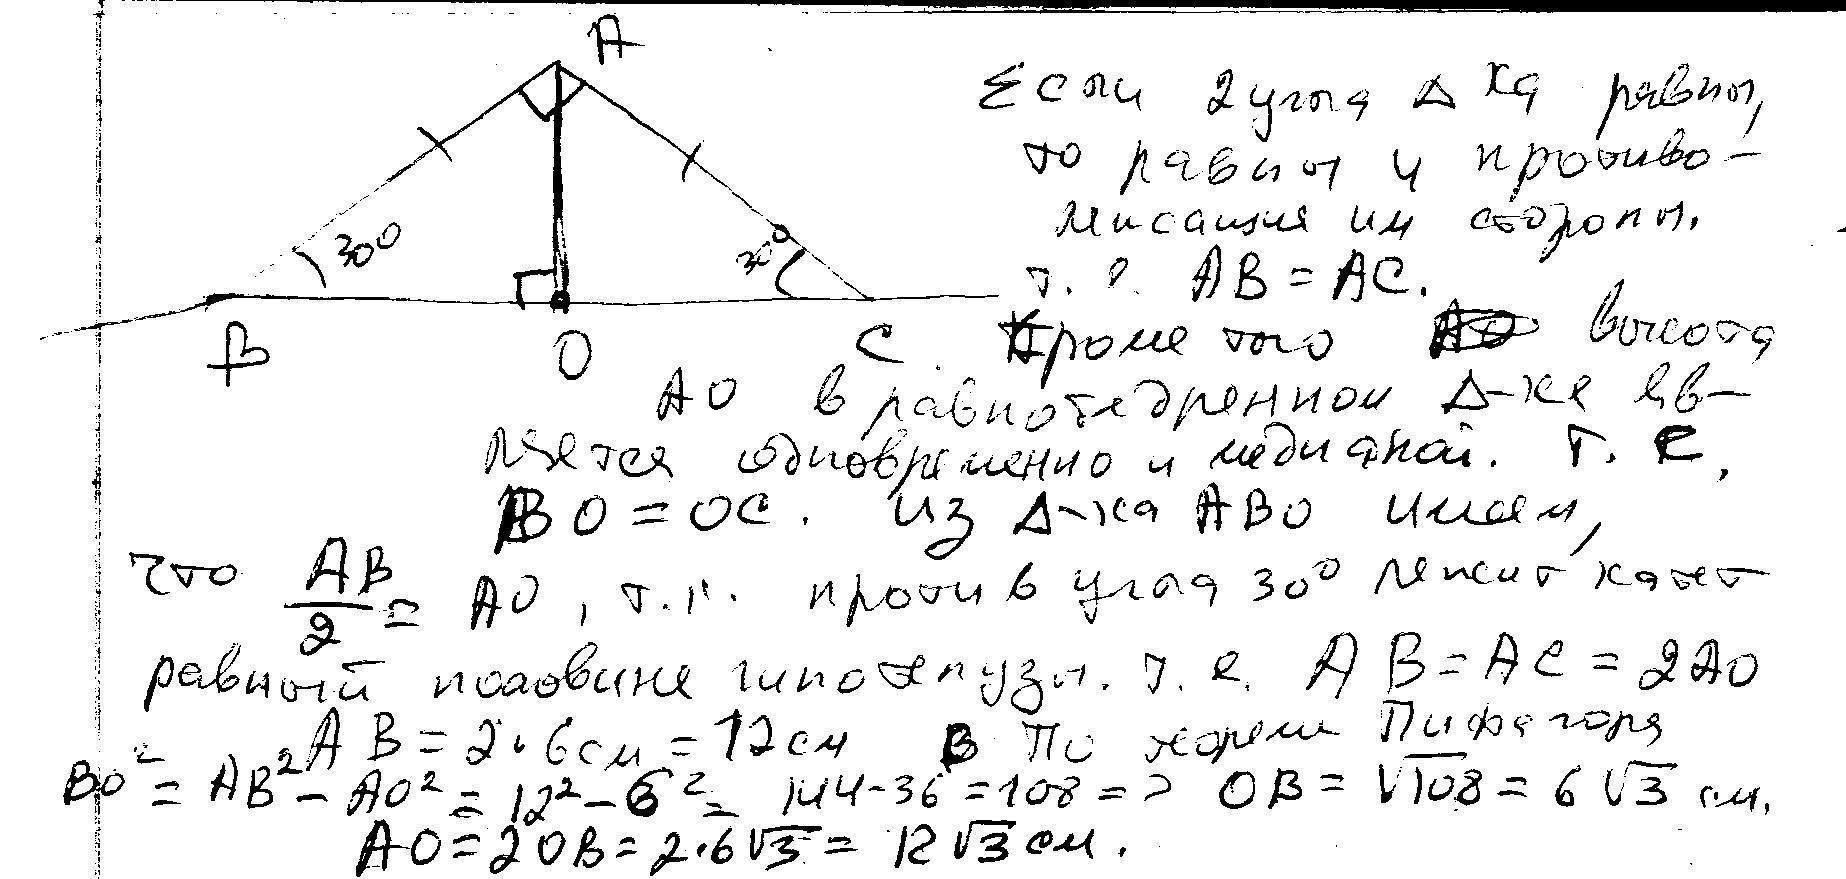 A
30°
30°
B
O
C
Если 2 угла Δ ка равны,
то равны и противо-
лежащие им стороны.
т. е. AB = AC.
Кроме того высота
AO в равнобедренном Δ-ке яв-
ляется одновременно и медианой. Т. Е.
BO = OC. Из Δ-ка ABO имеем,
что AB/2 = AO, т.к. против угла 30° лежит катет
равный половине гипотенузы. т. е. AB = AC = 2AO
AB = 2·6см = 12см В По теореме Пифагора
BO² = AB² - AO² = 12² - 6² = 144 - 36 = 108 => OB = √108 = 6√3 см.
AO = 2OB = 2·6√3 = 12√3 см.